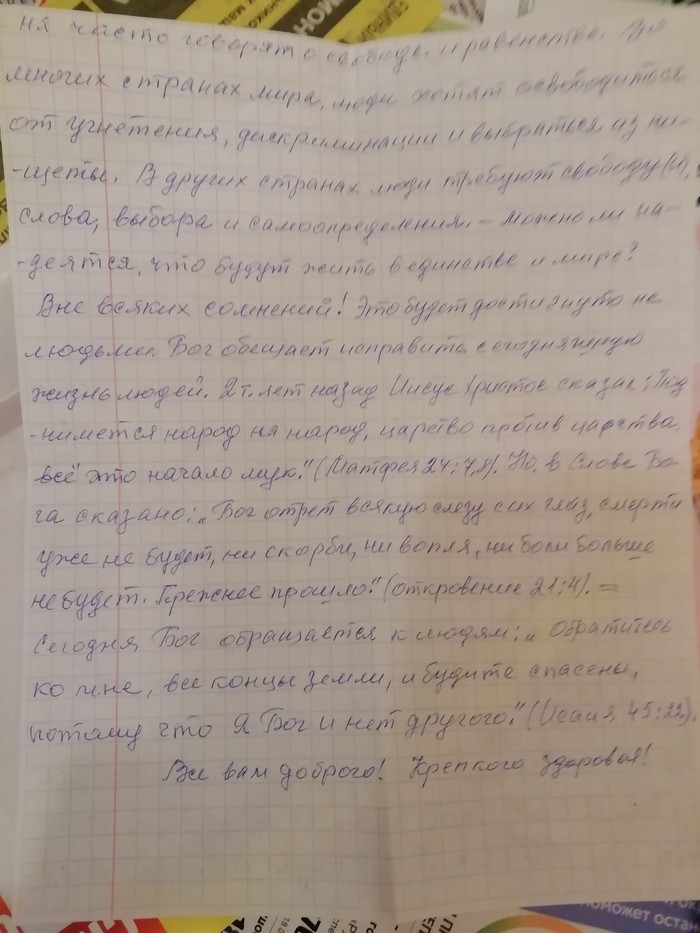 ЕДИНЫЙ
ня часто говорят о свободе и равенстве. Во
многих странах мира, люди хотят освободиться
от угнетения, дискриминации и выбраться из ни-
-щеты. В других странах люди требуют свободу(ы),
слова, выбора и самоопределения. – Можно ли на-
-деятся, что будут жить в единстве и мире?
Вне всяких сомнений! Это будет достигнуто не
людьми. Бог обещает исправить сегодняшнюю
жизнь людей. 2 т. лет назад Иисус Христос сказал: „Под
-нимется народ на народ, царство против царства,
всё это начало мук." (Матфея 24:7,8). Но, в Слове Бо-
га сказано: „Бог отрет всякую слезу с их глаз, смерти
уже не будет, ни скорби, ни вопля, ни боли больше
не будет. Прежнее прошло." (откровение 21:4). =
Сегодня Бог обращается к людям: „Обратитесь
ко мне, все концы земли, и будите спасены,
потому что Я Бог и нет другого." (Исаия 45:22).
Все вам доброго! Крепкого здоровья!
поможет